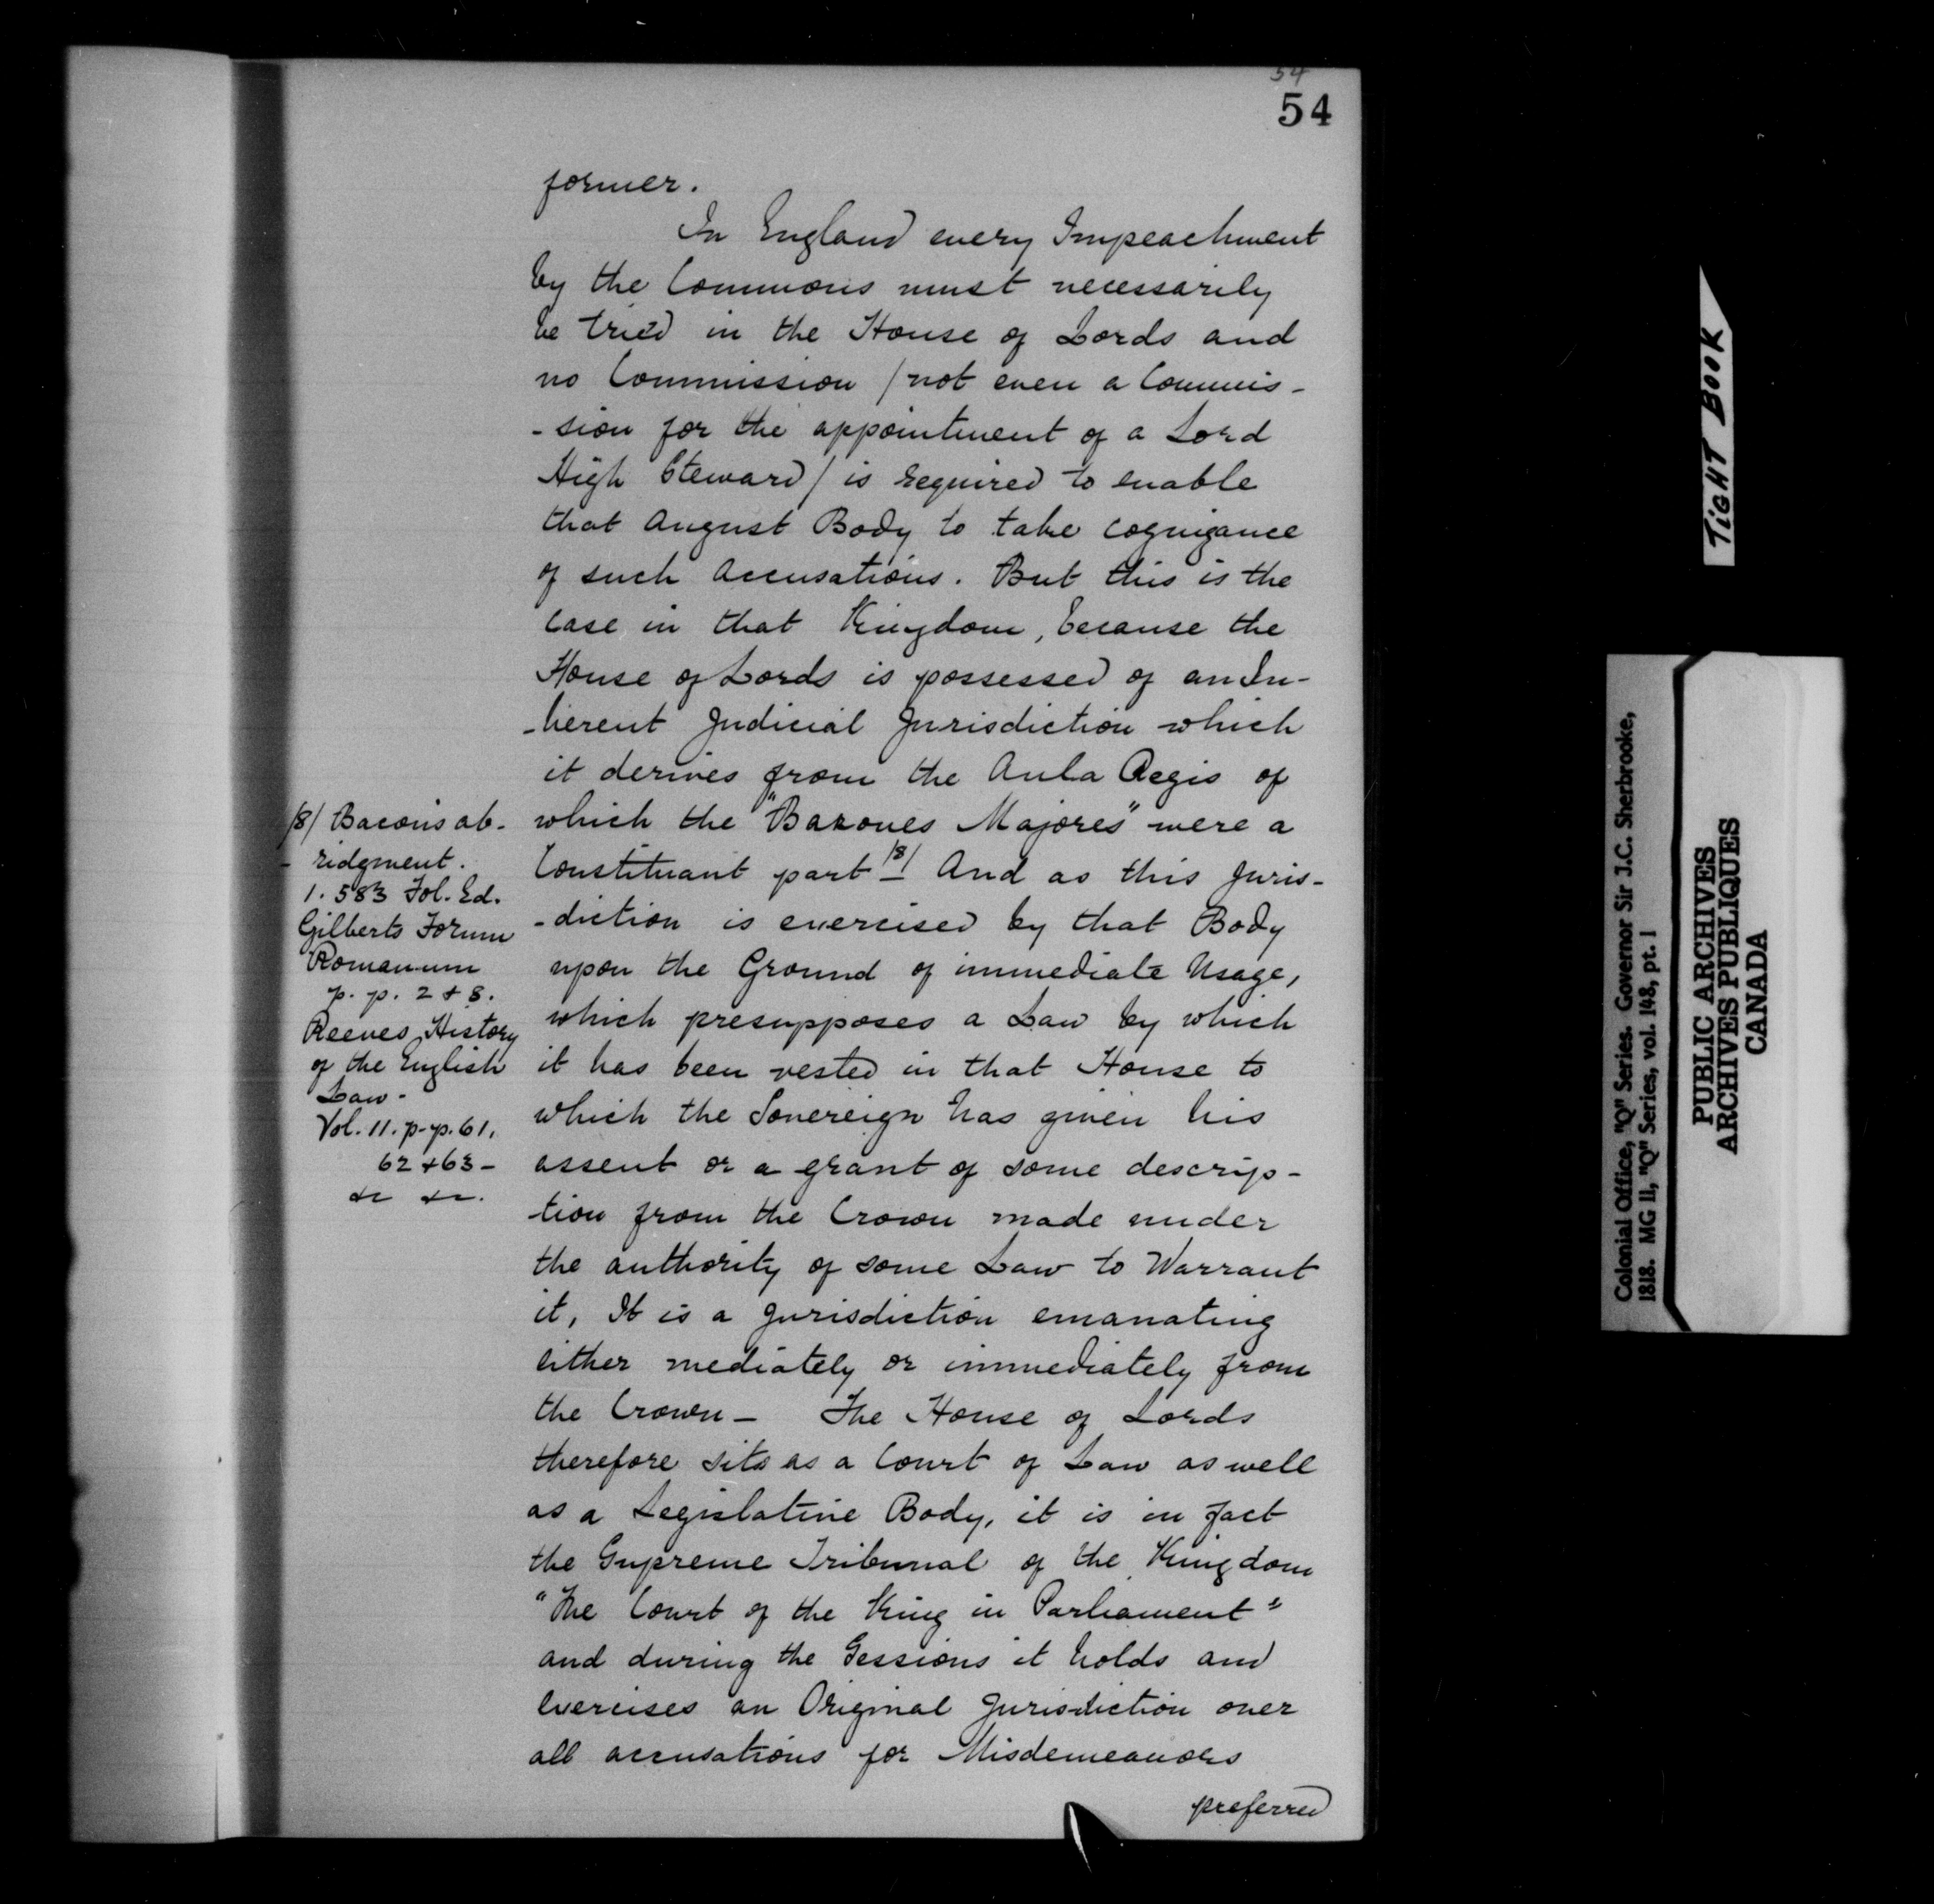 54
54
former.
In England every Impeachment
by the Commons must necessarily
be tried in the House of Lords and
no Commission /not even a Commis-
-sion for the appointment of a Lord
High Steward/ is required to enable
that August Body to take cognizance
of such Accusations. But this is the
Case in that Kingdom, because the
House of Lords is possessed of an In-
-herent Judicial Jurisdiction which
it derives from the Aula Regis of
which the "Barones Majores" were a
Constituant part /8/ And as this Juris-
-diction is exercised by that Body
upon the Ground of immediate Usage,
which presupposes a Law by which
it has been vested in that House to
which the Sovereign has given his
assent or a grant of some descrip-
-tion from the Crown made under
the authority of some Law to Warrant
it, It is a Jurisdiction emanating
either mediately or immediately from
the Crown - The House of Lords
therefore sits as a Court of Law as well
as a Legislative Body, it is in fact
the Supreme Tribunal of the Kingdom
"The Court of the King in Parliament"
and during the Sessions it holds and
Exercises an Original Jurisdiction over
all accusations for Misdemeanors
preferred
/8/ Bacons ab-
-ridgment.
1. 583 Fol. Ed.
Gilberts Forum
Romanum
p. p. 2 & 8.
Reeves History
of the English
Law -
Vol. 11. p-p. 61,
62 & 63 -
&c &c.
TIGHT BOOK
Colonial Office, "Q" Series. Governor Sir J.C. Sherbrooke,
1818. MG 11, "Q" Series, vol. 148, pt. 1
PUBLIC ARCHIVES
ARCHIVES PUBLIQUES
CANADA